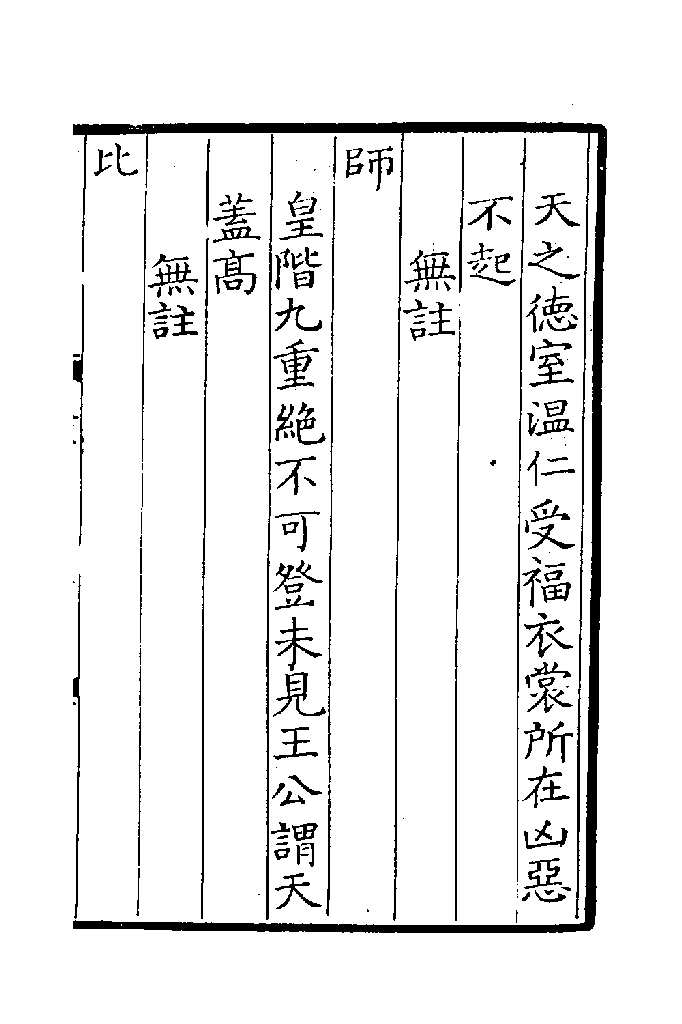 天之徳室温仁受福衣裳所在凶惡
不起
無註
師
皇階九重絶不可登未見王公謂天
蓋髙
無註
比